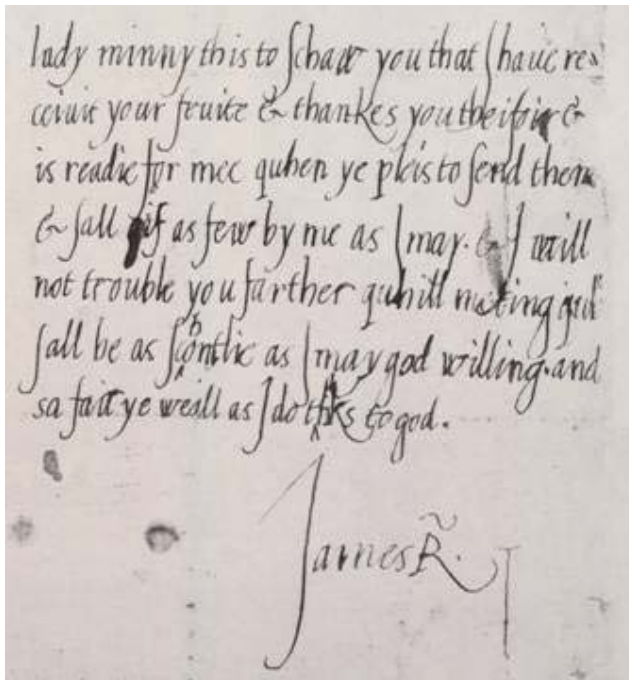 lady minny this to schaw you that I haue re=
ceiuit your fruite & thankes you theifoir &
is readie for mee quhen ye pleis to send them
& sall gif as few by me as I may. & I will
not trouble you farther quhill meting quhilk
sall be as schortlie as I may god willing. and
sa fair ye weill as I do thks to god.
James R.